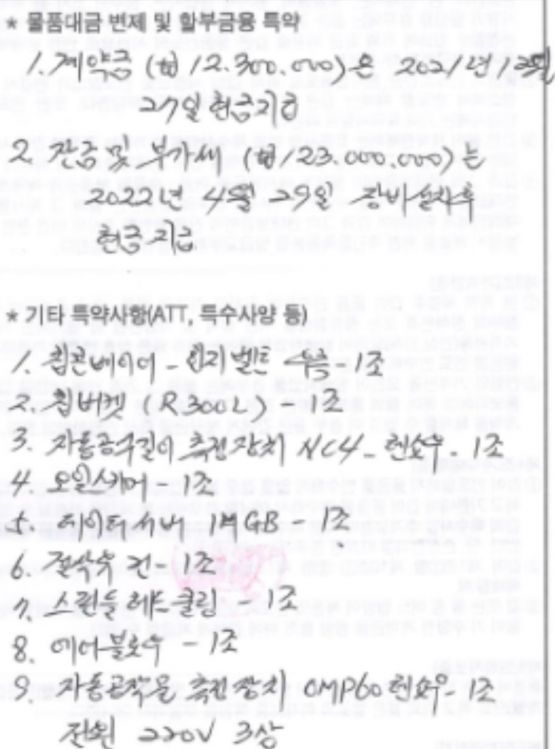 * 물품대금 변제 및 할부금융 특약
1. 계약금 (₩12.300.000)은 2021년 12월
27일 현금지급
2. 잔금 및 부가세 (₩123.000.000)는
2022년 4월 29일 장비설치후
현금지급
* 기타 특약사항(ATT, 특수사양 등)
1. 칩콘베이어 - 힌지벨트 우측 - 1조
2. 칩버켓 (R300L) - 1조
3. 자동공구길이 측정장치 NC4 - 헌소우 - 1조
4. 오일스키머 - 1조
5. 데이터서버 1식 GB - 1조
6. 절삭유 건 - 1조
7. 스핀들헤드쿨러 - 1조
8. 에어블로우 - 1조
9. 자동공작물 측정장치 OMP60 헌소우 - 1조
전원 220V 3상